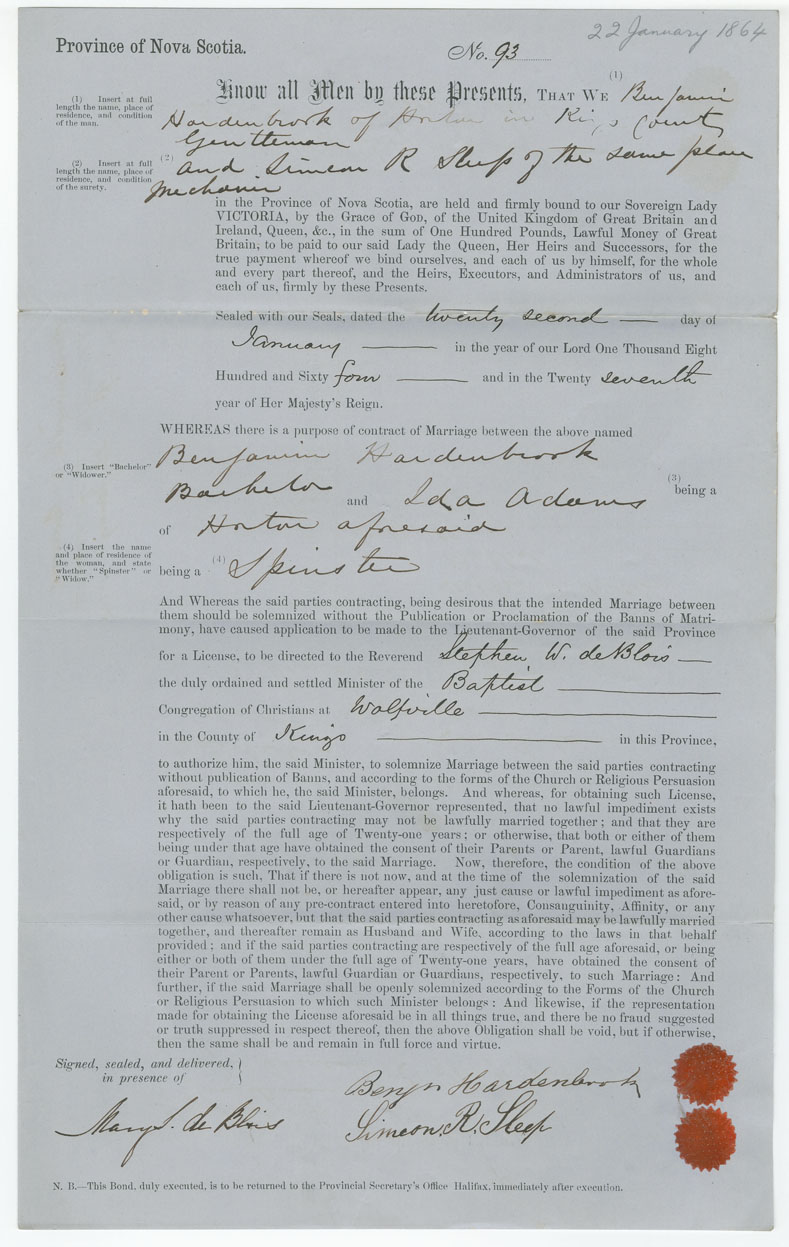 22 January 1864
Province of Nova Scotia.
No. 93
(1) Insert at full
length the name, place of
residence, and condition
of the man.
Know all Men by these Presents, THAT WE (1) Benjamin
Hardenbrook of Horton in Kings County
Gentleman
(2) Insert at full
length the name, place of
residence, and condition
of the surety.
(2) and Simeon R Sleep of the same place
Mechanic
in the Province of Nova Scotia, are held and firmly bound to our Sovereign Lady
VICTORIA, by the Grace of GOD, of the United Kingdom of Great Britain and
Ireland, Queen, &c., in the sum of One Hundred Pounds, Lawful Money of Great
Britain, to be paid to our said Lady the Queen, Her Heirs and Successors, for the
true payment whereof we bind ourselves, and each of us by himself, for the whole
and every part thereof, and the Heirs, Executors, and Administrators of us, and
each of us, firmly by these Presents.
Sealed with our Seals, dated the twenty second — day of
January — in the year of our Lord One Thousand Eight
Hundred and Sixty four — and in the Twenty seventh
year of Her Majesty's Reign.
WHEREAS there is a purpose of contract of Marriage between the above named
Benjamin Hardenbrook
(3) Insert "Bachelor"
or "Widower."
(3) being a
Bachelor and Ida Adams
of Horton aforesaid
(4) Insert the name
and place of residence of
the woman, and state
whether "Spinster" or
"Widow."
being a (4) Spinster
And Whereas the said parties contracting, being desirous that the intended Marriage between
them should be solemnized without the Publication or Proclamation of the Banns of Matri-
mony, have caused application to be made to the Lieutenant-Governor of the said Province
for a License, to be directed to the Reverend Stephen W. deBlois —
the duly ordained and settled Minister of the Baptist —
Congregation of Christians at Wolfville —
in the County of Kings — in this Province,
to authorize him, the said Minister, to solemnize Marriage between the said parties contracting
without publication of Banns, and according to the forms of the Church or Religious Persuasion
aforesaid, to which he, the said Minister, belongs. And whereas, for obtaining such License,
it hath been to the said Lieutenant-Governor represented, that no lawful impediment exists
why the said parties contracting may not be lawfully married together; and that they are
respectively of the full age of Twenty-one years; or otherwise, that both or either of them
being under that age have obtained the consent of their Parents or Parent, lawful Guardians
or Guardian, respectively, to the said Marriage. Now, therefore, the condition of the above
obligation is such, That if there is not now, and at the time of the solemnization of the said
Marriage there shall not be, or hereafter appear, any just cause or lawful impediment as afore-
said, or by reason of any pre-contract entered into heretofore, Consanguinity, Affinity, or any
other cause whatsoever, but that the said parties contracting as aforesaid may be lawfully married
together, and thereafter remain as Husband and Wife, according to the laws in that behalf
provided; and if the said parties contracting are respectively of the full age aforesaid, or being
either or both of them under the full age of Twenty-one years, have obtained the consent of
their Parent or Parents, lawful Guardian or Guardians, respectively, to such Marriage: And
further, if the said Marriage shall be openly solemnized according to the Forms of the Church
or Religious Persuasion to which such Minister belongs: And likewise, if the representation
made for obtaining the License aforesaid be in all things true, and there be no fraud suggested
or truth suppressed in respect thereof, then the above Obligation shall be void, but if otherwise,
then the same shall be and remain in full force and virtue.
Signed, sealed, and delivered,
in presence of
Benjn Hardenbrook
Mary S. de Blois
Simeon. R. Sleep
N. B.—This Bond, duly executed, is to be returned to the Provincial Secretary's Office Halifax, immediately after execution.